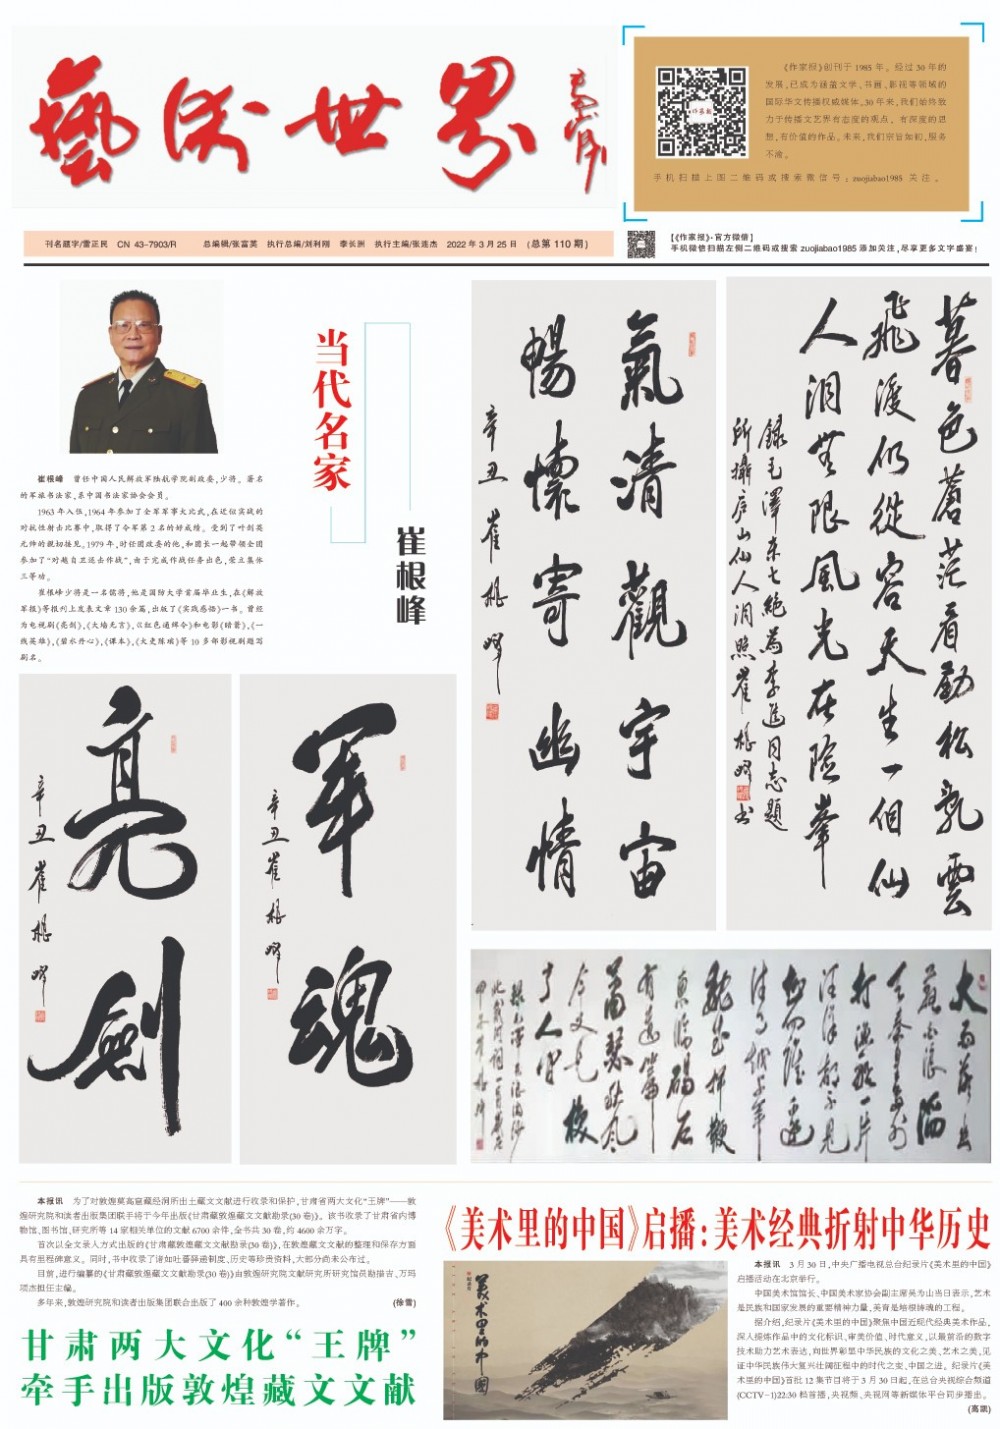 藝術世界
《作家报》创刊于 1985 年。经过 30 年的
发展,已成为涵盖文学、书画、影视等领域的
国际华文传播权威媒体,30 年来,我们始终致
力于传播文艺界有态度的观点,有深度的思
想,有价值的作品。未来,我们宗旨如初,服务
不渝。
手机扫描上面二维码或搜索微信号:zuojiabao1985 关注。
刊名题字/雷正民 CN 43-7903/R 总编辑/张富英 执行总编/刘利刚 季长洲 执行主编/张连杰 2022 年 3 月 25 日 (总第 110 期)
【《作家报》·官方微信】
手机微信扫描左侧二维码或搜索 zuojiabao1985 添加关注,尽享更多文字盛宴!
当代名家
崔根峰
崔根峰 曾任中国人民解放军陆航学院副政委,少将。著名
的军旅书法家,系中国书法家协会会员。
1963 年入伍,1964 年参加了全军军事大比武,在近似实战的
对抗性射击比赛中,取得了全军第 2 名的好成绩。受到了叶剑英
元帅的亲切接见。1979 年,时任团政委的他,和团长一起带领全团
参加了“对越自卫还击作战”,由于完成作战任务出色,荣立集体
三等功。
崔根峰少将是一名儒将,他是国防大学首届毕业生,在《解放
军报》等报刊上发表文章 130 余篇,出版了《实践感悟》一书。曾经
为电视剧《亮剑》,《大墙无言》,《红色通缉令》和电影《暗箭》,《一
线英雄》,《碧水丹心》,《课本》,《大史陈瑸》等 10 多部影视剧题写
剧名。
暮色蒼茫看勁松亂雲
飛渡仍從容天生一個仙
人洞無限風光在險峯
録毛澤東七絶為李進同志題
所攝庐山仙人洞照崔根峰书
氣清觀宇宙
暢懷寄幽情
辛丑崔根峰
軍魂
辛丑崔根峰
亮劍
辛丑崔根峰
大雨落幽
燕白浪滔
天秦皇島外
打漁船一片
汪洋都不見
知向誰邊
往事越千年
魏武揮鞭
東臨碣石
有遺篇
蕭瑟秋風
今又是換
了人間
本报讯 为了对敦煌莫高窟藏经洞所出土藏文文献进行收录和保护,甘肃省两大文化“王牌”——敦
煌研究院和读者出版集团联手将于今年出版《甘肃藏敦煌藏文文献勘录(30 卷)》。该书收录了甘肃省内博
物馆、图书馆、研究所等 14 家相关单位的文献 6700 余件,全书共 30 卷,约 4600 余万字。
首次以全文录入方式出版的《甘肃藏敦煌藏文文献勘录(30 卷)》,在敦煌藏文文献的整理和保存方面
具有里程碑意义。同时,书中收录了诸如吐蕃驿递制度、历史等珍贵资料,大部分尚未公布过。
目前,进行编纂的《甘肃藏敦煌藏文文献勘录(30 卷)》由敦煌研究院文献研究所研究馆员勘措吉、万玛
项杰担任主编。
多年来,敦煌研究院和读者出版集团联合出版了 400 余种敦煌学著作。 (徐雪)
甘肃两大文化“王牌”
牵手出版敦煌藏文文献
《美术里的中国》启播:美术经典折射中华历史
美术里的中国
本报讯 3 月 30 日,中央广播电视总台纪录片《美术里的中国》
启播活动在北京举行。
中国美术馆馆长、中国美术家协会副主席吴为山当日表示,艺术
是民族和国家发展的重要精神力量,美育是培根铸魂的工程。
据介绍,纪录片《美术里的中国》聚焦中国近现代经典美术作品,
深入提炼作品中的文化标识、审美价值、时代意义,以最前沿的数字
技术助力艺术表达,向世界彰显中华民族的文化之美、艺术之美,见
证中华民族伟大复兴壮阔征程中的时代之变、中国之进。纪录片《美
术里的中国》首批 12 集节目将于 3 月 30 日起,在总台央视综合频道
(CCTV-1)22:30 档首播,央视频、央视网等新媒体平台同步播出。
(高凯)